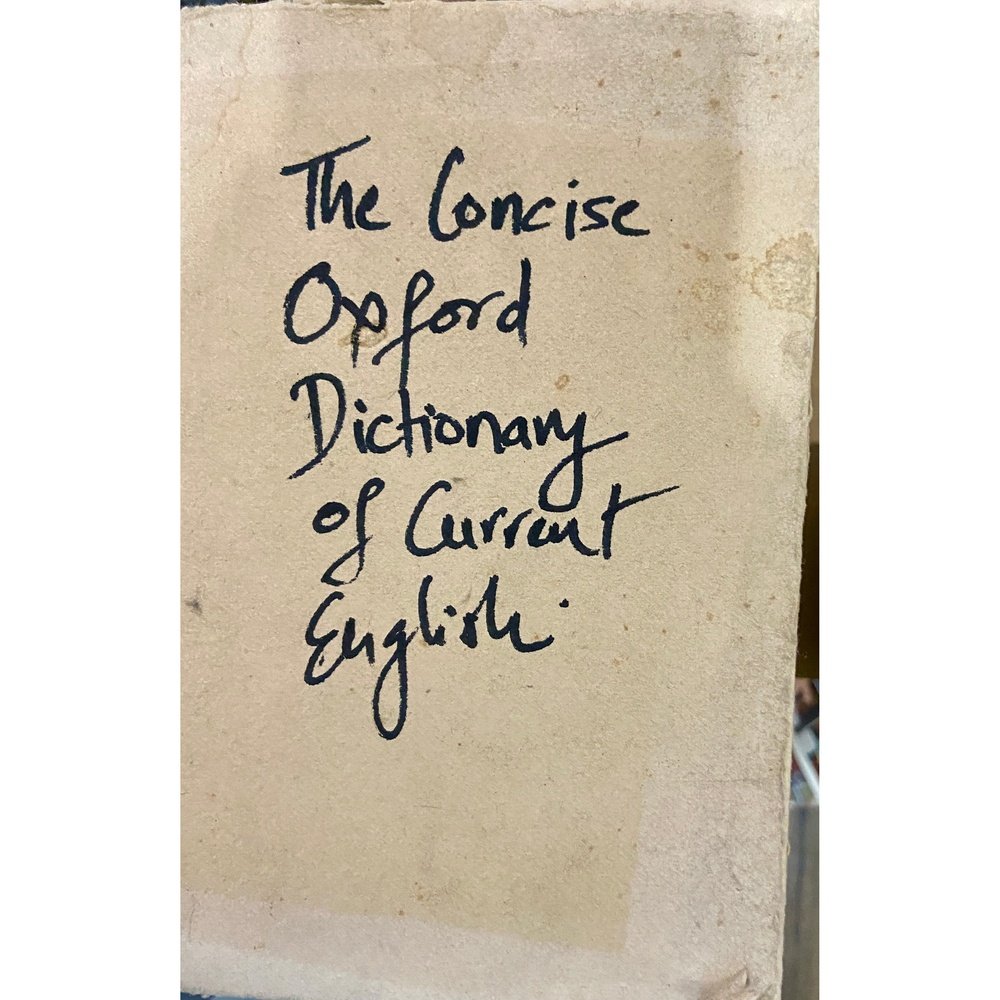 The Concise
Oxford
Dictionary
of Current
English.